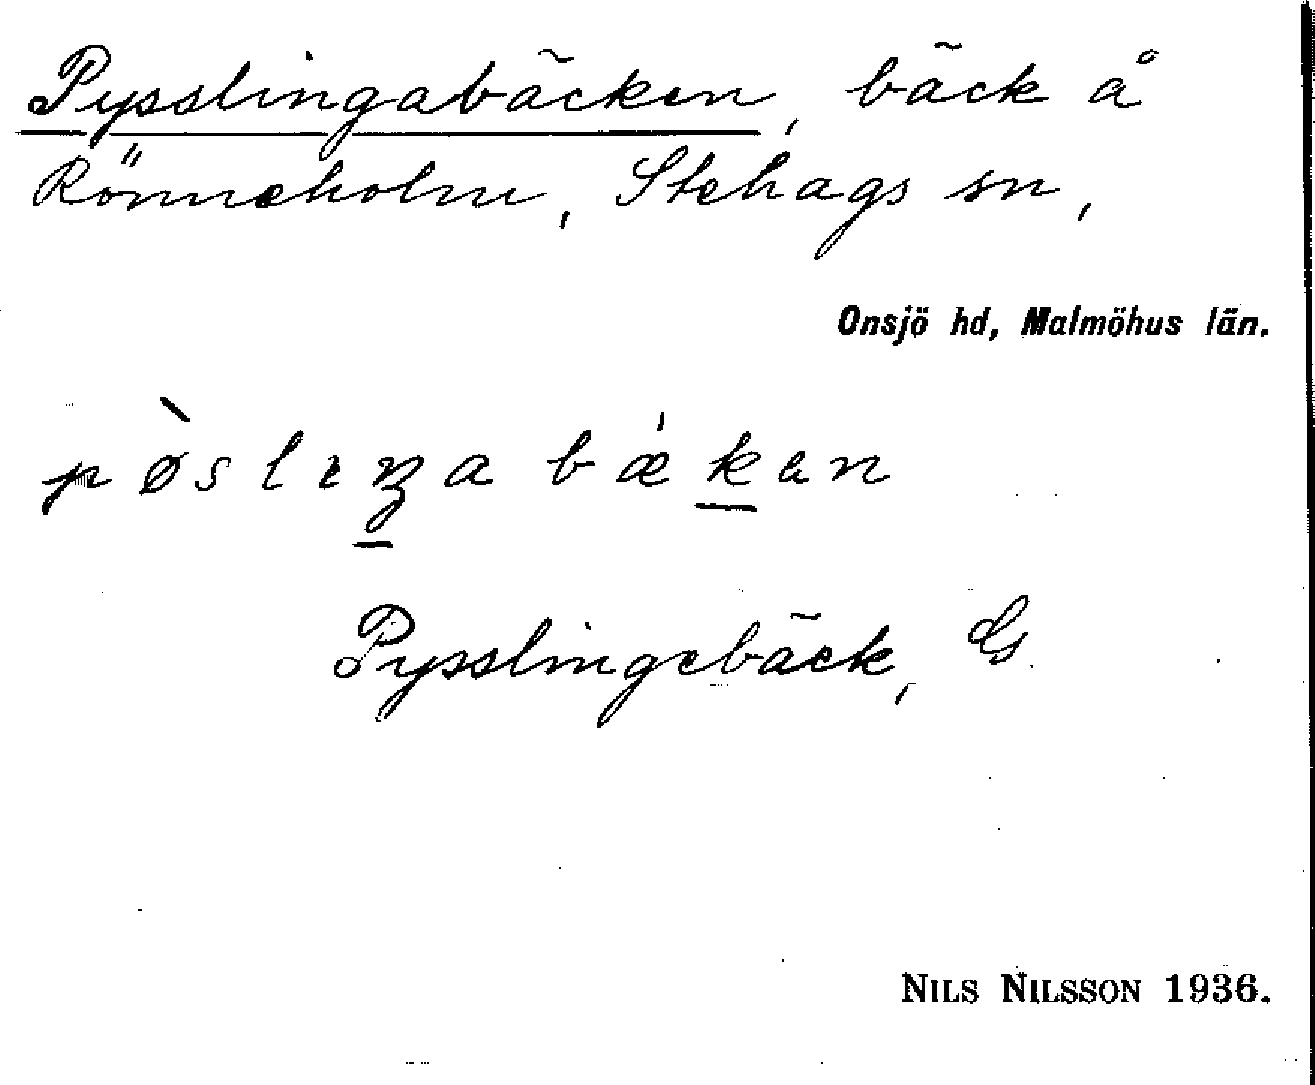 Pysslingabäcken, bäck å
Rönneholm, Stehags sn,
Onsjö hd, Malmöhus län.
pø̀slɪŋa bǽken
Pysslingebäck, G
NILS NILSSON 1936.